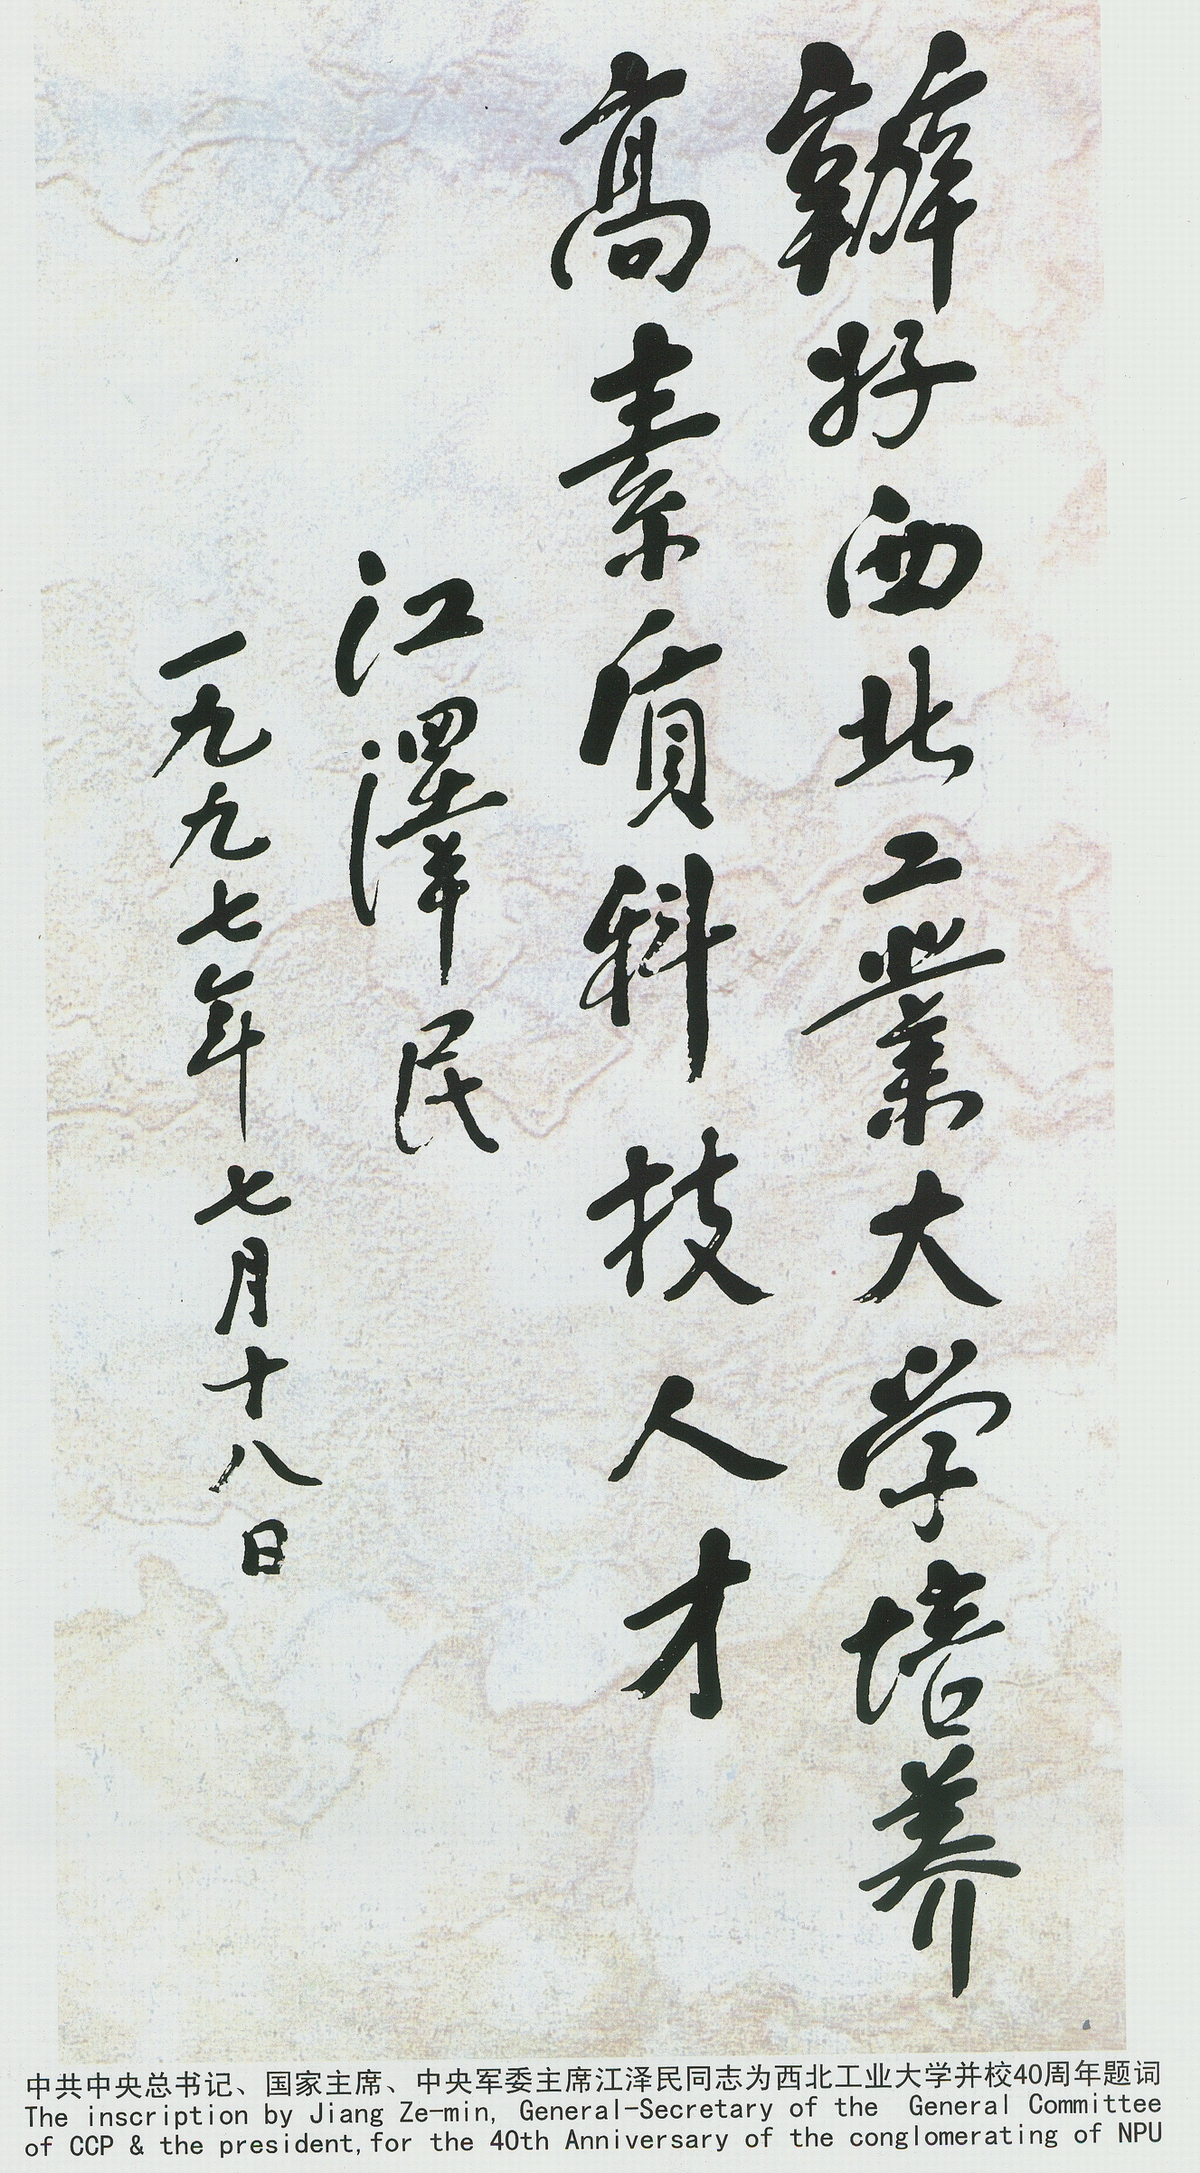 辦好西北工業大学培养
高素質科技人才
江澤民
一九九七年七月十八日
中共中央总书记、国家主席、中央军委主席江泽民同志为西北工业大学并校40周年题词
The inscription by Jiang Ze-min, General-Secretary of the General Committee
of CCP & the president,for the 40th Anniversary of the conglomerating of NPU